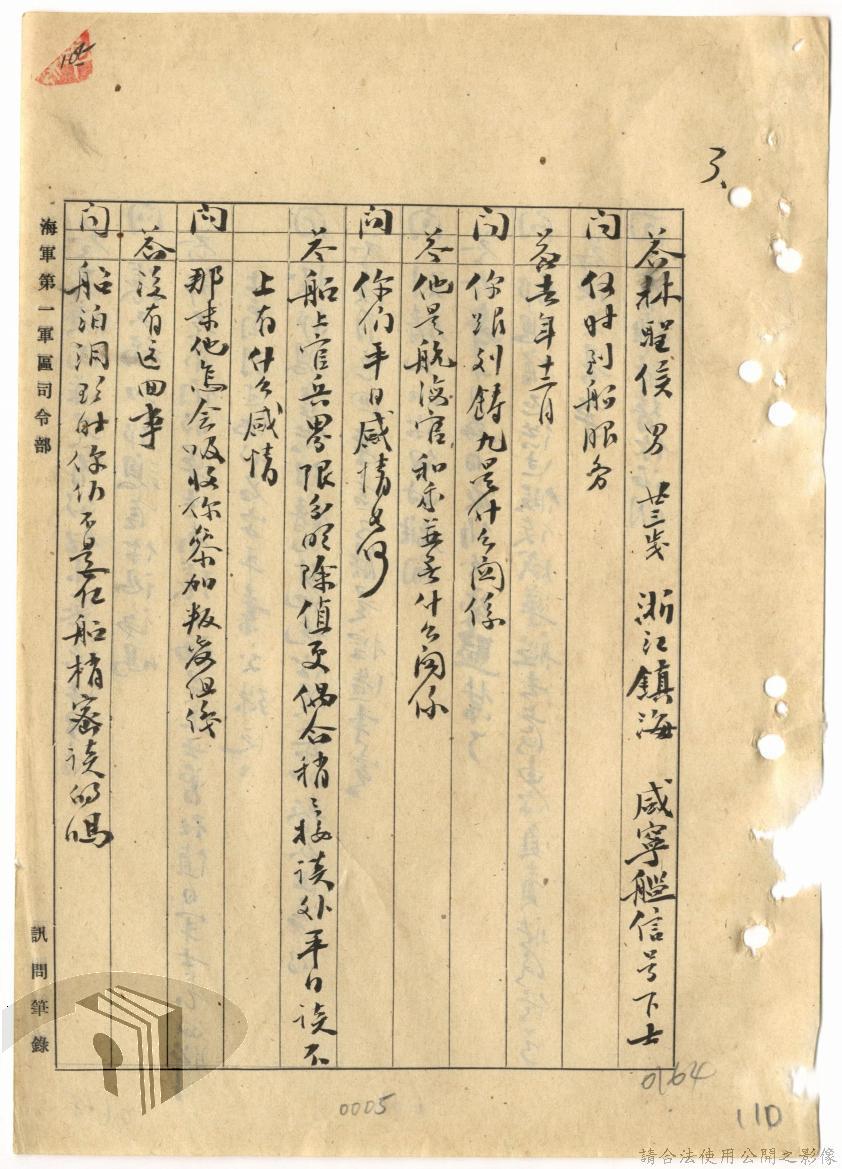 3、
答 林聖侯 男 廿三歲 浙江鎮海 咸寧艦信号下士
问 何时到船服务
答 去年十二月
问 你跟刘鑄九是什么関係
答 他是航海官和我並無什么関係
问 你们平日感情如何
答 船上官兵界限分明除值更偶合稍々接谈外平日谈不
上有什么感情
问 那末他怎会吸收你参加叛变组織
答 没有这回事
问 船泊洞头时你们不是在船梢密谈的嗎
海軍第一軍區司令部
訊問筆錄
0005
0164
110
104
請合法使用公開之影像